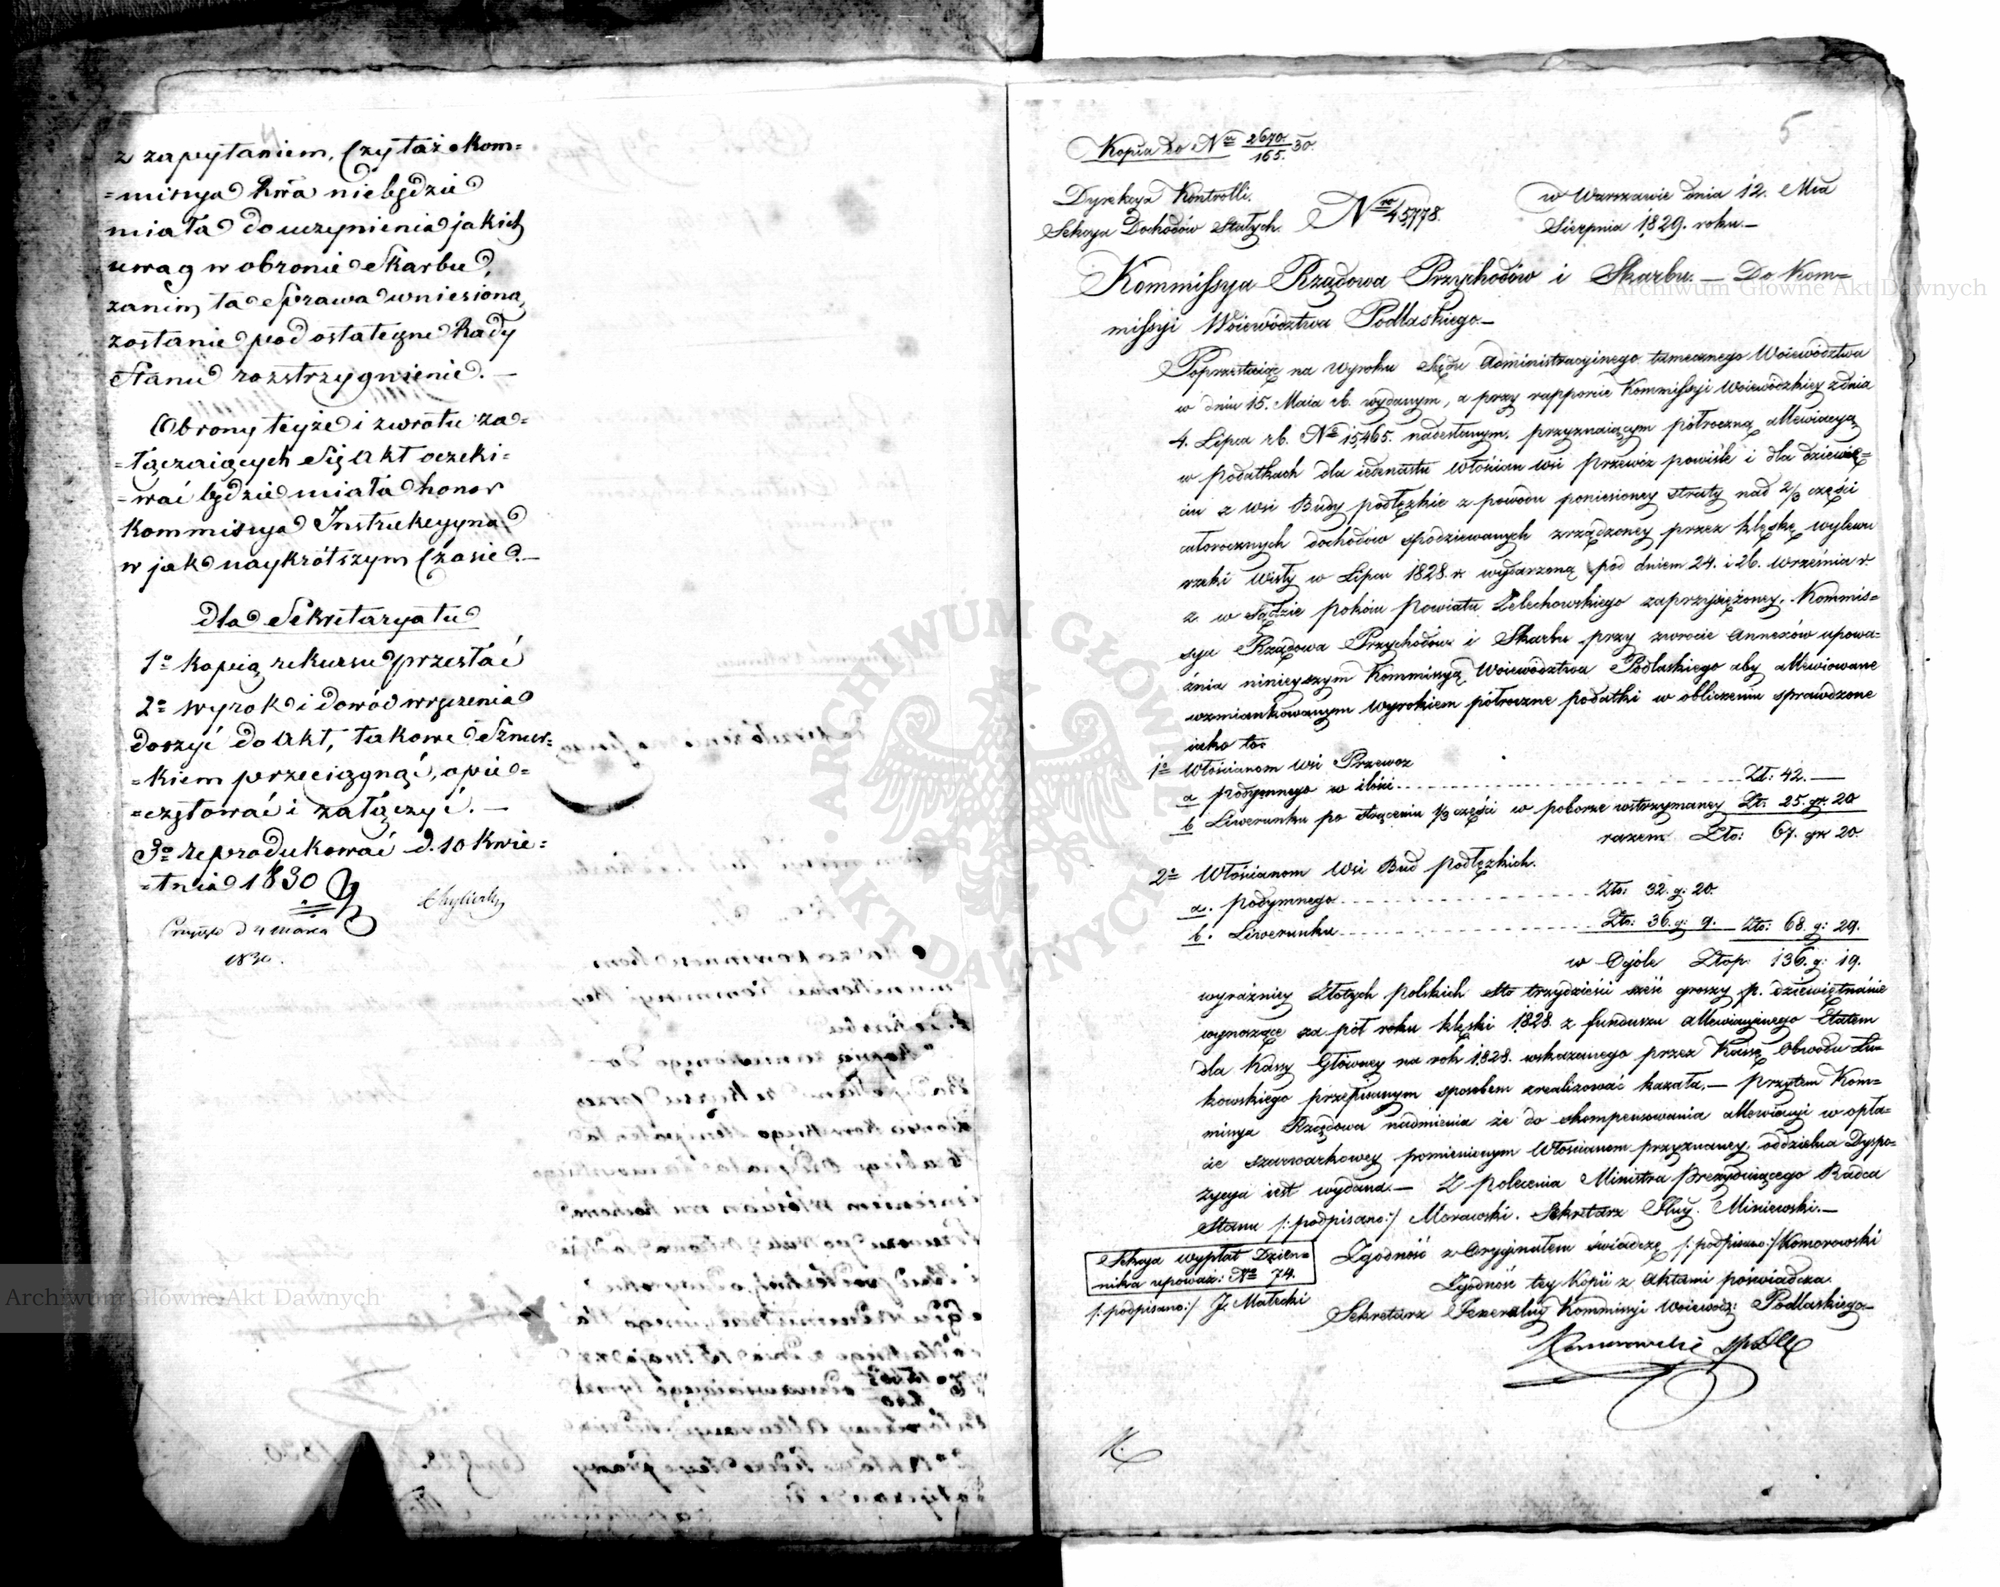 z zapytaniem, Czyli też Kom=
=missya Rwa niebędzie
miała do uczynienia jakich
uwag w obronie Skarbu,
zanim ta Sprawa wniesioną
zostanie pod ostateczne Rady
Stanu rozstrzygnienie. —
Obrony teyże i zwrotu za=
=łączaiących się Akt oczeki=
=wać będzie miała honor
Kommissya Instrukcyyna
w jak naykrótszym Czasie. —
dla Sekretaryatu
1° kopią rekursu przesłać
2° wyrok i dowód wręczenia
doszyć do Akt, takowe Sznur=
=kiem przeciągnąć, opie=
=czętować i załączyć. —
3° reprodukować d. 10 Kwie=
=tnia 1830
d 4 Marca
1830.
5
Kopia do Nru 2670/165. 30.
Dyrekcya Kontrolli.
Sekcya Dochodów Stałych.
Nro 45778.
w Warszawie dnia 12. Mca
Sierpnia 1829. roku. —
Kommissya Rządowa Przychodów i Skarbu. — Do Kom=
missyi Woiewództwa Podlaskiego. —
Poprzestaiąc na wyroku Sądu Administracyinego tamecznego Woiewództwa
w dniu 15. Maia rb. wydanym, a przy rapporcie Kommissyi Woiewódzkiey z dnia
4. Lipca rb. No 15465. nadesłanym, przyznaiącym półroczną allewiacyą
w podatkach dla iedenastu włościan wsi przewóz powiśle i dla dziewię=
ciu z wsi Budy podłęzkie z powodu poniesioney straty nad 2/3 części
całorocznych dochodów spodziewanych zrządzoney przez klęskę wylewu
rzeki Wisły w Lipcu 1828. r. wydarzoną pod dniem 24. i 26. września r.
z. w Sądzie pokoiu Powiatu Żelechowskiego zaprzysiężoney. Kommis=
sya Rządowa Przychodów i Skarbu przy zwrocie Annexów upowa=
żnia ninieyszym Kommissyą Woiewództwa Podlaskiego aby allewiowane
wzmiankowanym wyrokiem półroczne podatki w obliczeniu sprawdzone
iako to:
1° Włościanom wsi Przewoz
a podymnego w ilości Zł: 42. —
b Liwerunku po strąceniu 1/3 części w poborze wstrzymaney Zł: 25. gr. 20
razem Zło: 67. gr 20.
2° Włościanom Wsi Bud podłęzkich.
a. podymnego Zło: 32. g: 20.
b. Liwerunku Zło: 36. g: 9. Zło: 68. g: 29.
w Ogóle Złop: 136. g: 19.
wyraźniey Złotych polskich sto trzydzieści sześć groszy p. dziewiętnaście
wynoszące za pół roku klęski 1828. z funduszu allewiacyinego Etatem
dla Kassy Główney na rok 1828. wskazanego przez Kassę Obwodu Łu=
kowskiego przepisanym sposobem zrealizować kazała. — przytem Kom=
missya Rządowa nadmienia że do skompensowania allewiacyi w opła=
cie szarwarkowey pomienionym Włościanom przyznaney oddzielna Dyspo=
zycya iest wydana. — Z polecenia Ministra Prezyduiącego Radca
Stanu /:podpisano:/ Morawski. Sekretarz Jluy. Miniewski. —
Zgodność z Oryginałem świadczę /:podpisano:/ Komorowski
Sekcya wypłat Dzien=
nika upoważ: No 74.
/:podpisano:/ J. Małecki
Zgodność tey Kopii z Aktami poświadcza.
Sekretarz Jeneralny Kommissyi Woiewódz: Podlaskiego —
Komorowski